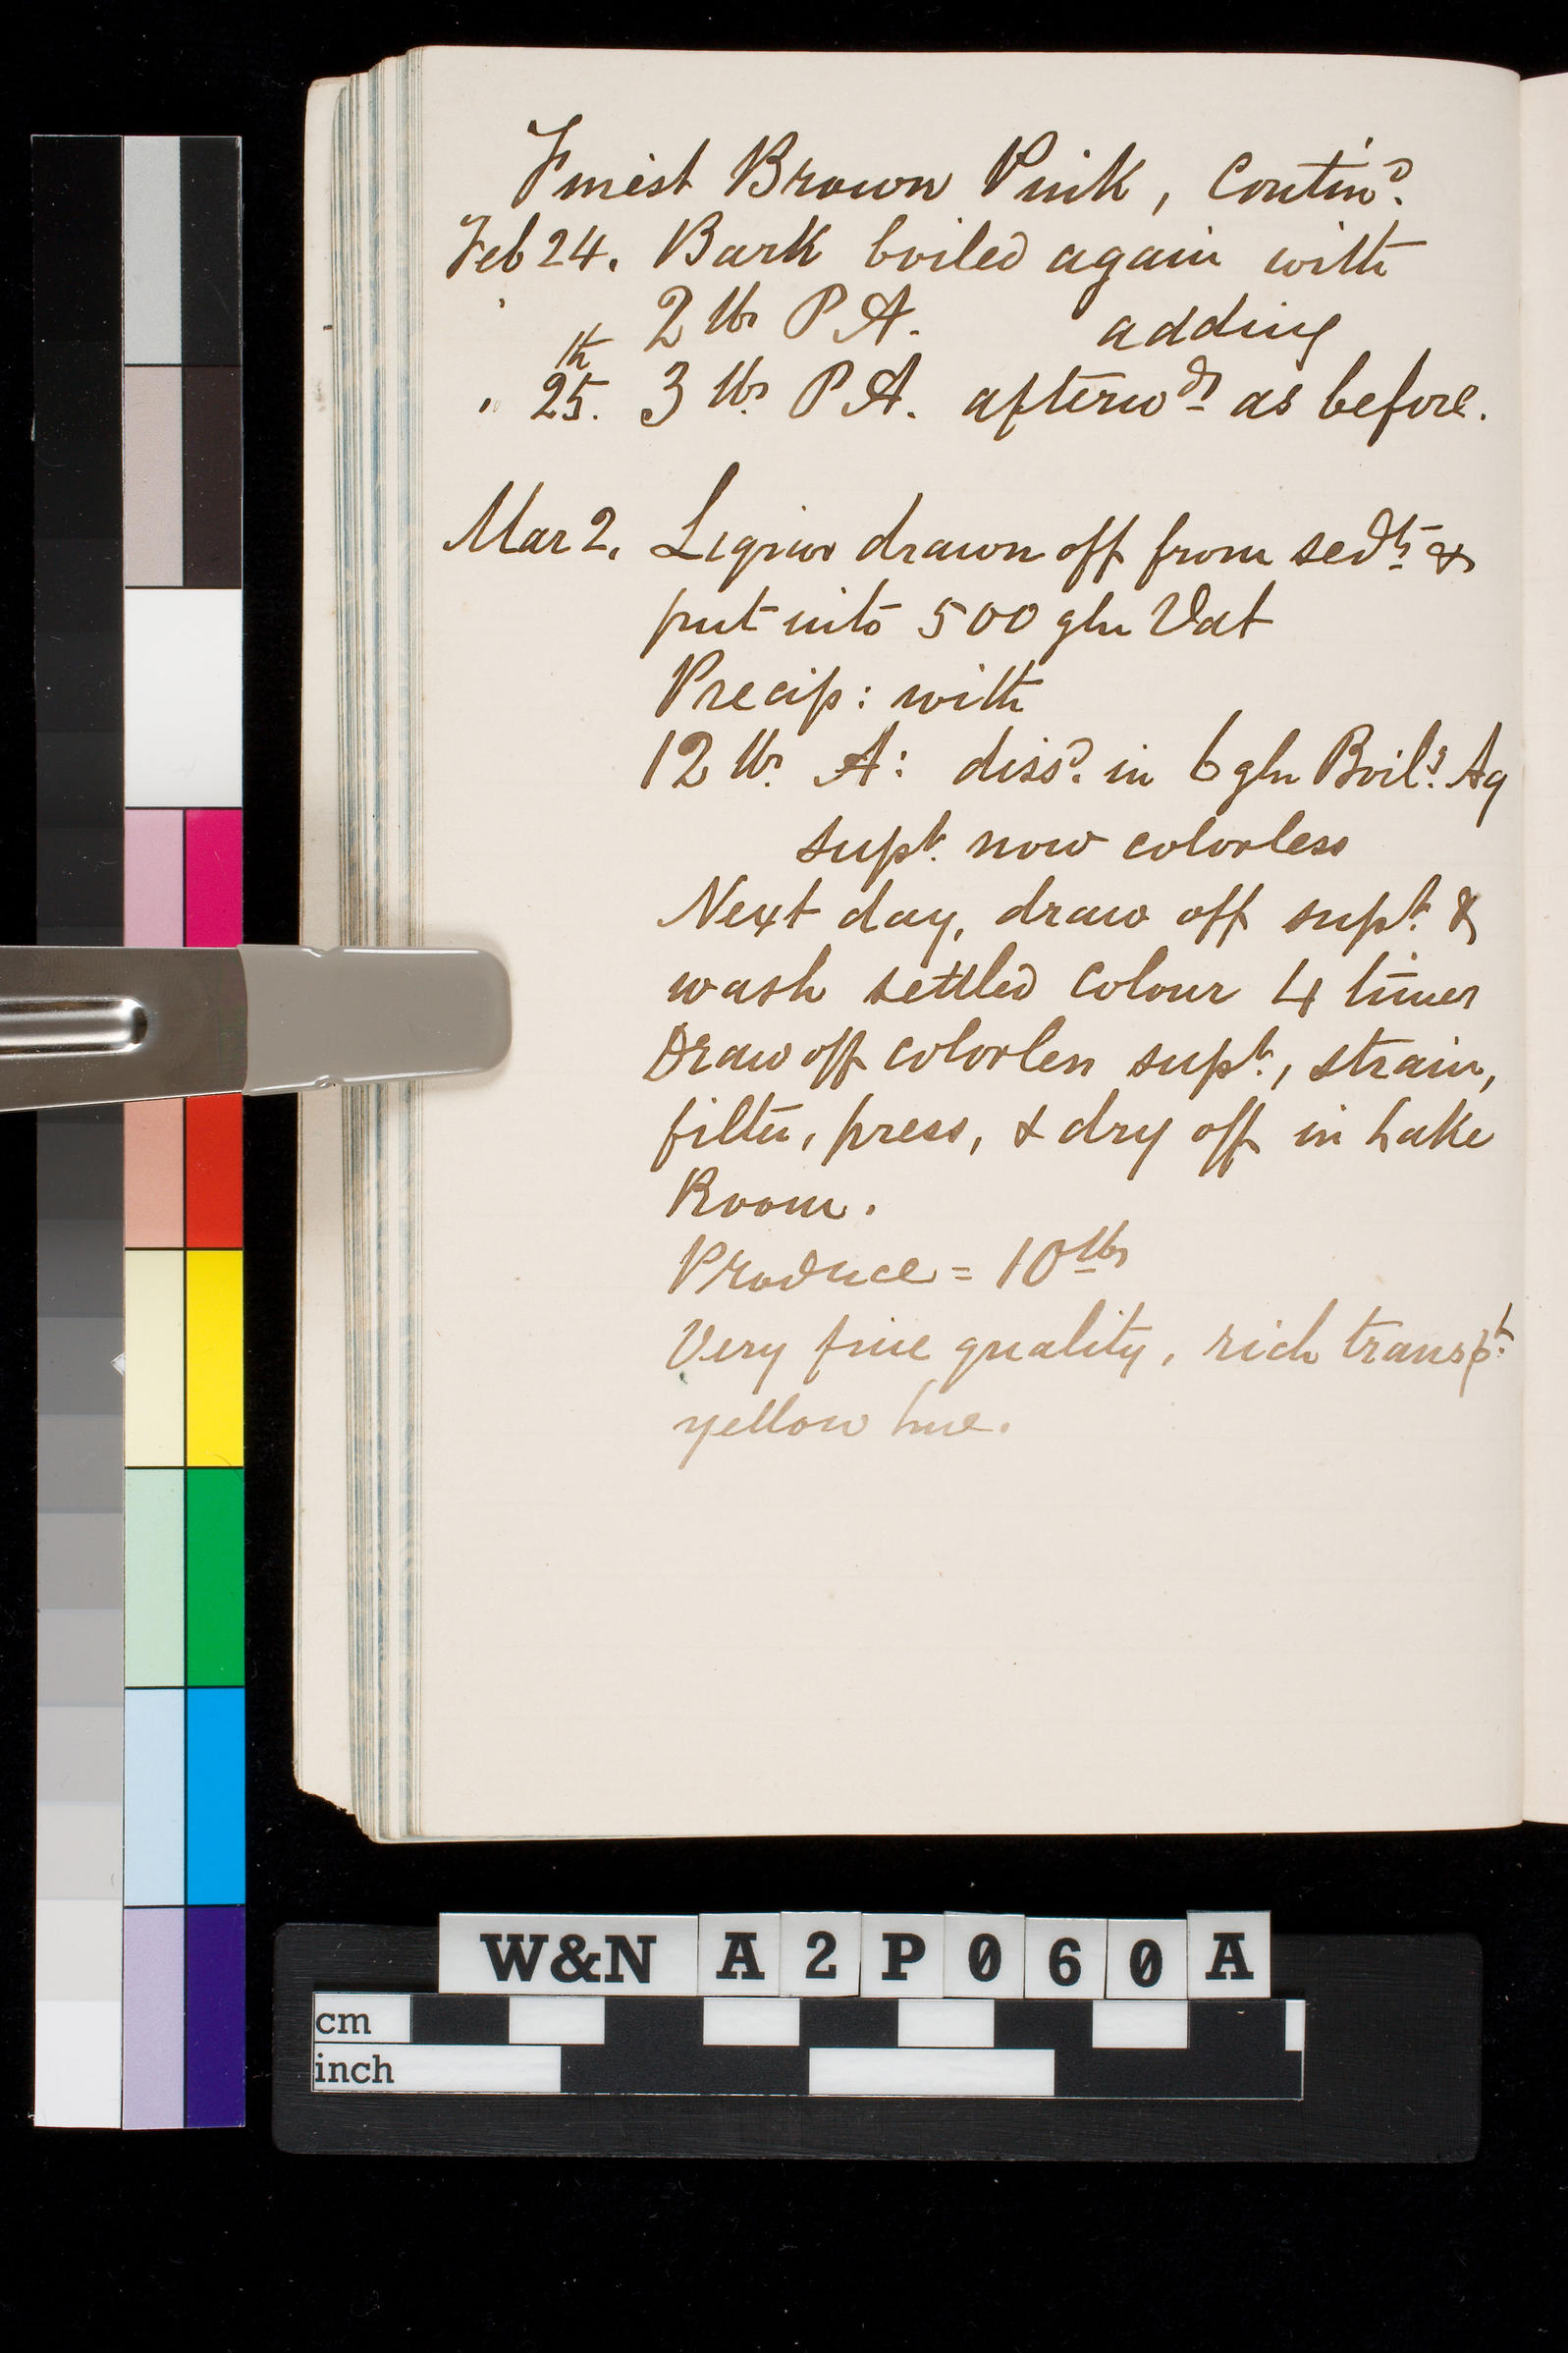 Finest Brown Pink, Contind.
Feb 24. Bark boiled again with
2 lbs P A. adding
" 25th. 3 lbs P A. afterwds as before.
Mar 2. Liquor drawn off from sedts &
put into 500 gln Vat
Precip: with
12 lbs. A: dissd. in 6 gln Boilg. Aq
supt. now colorless
Next day, draw off supt. &
wash settled colour 4 times
Draw off colorless supt., strain,
filter, press, & dry off in Lake
Room.
Produce = 10 lbs
Very fine quality, rich transpt.
yellow hue.
W&N A2P060A
cm
inch